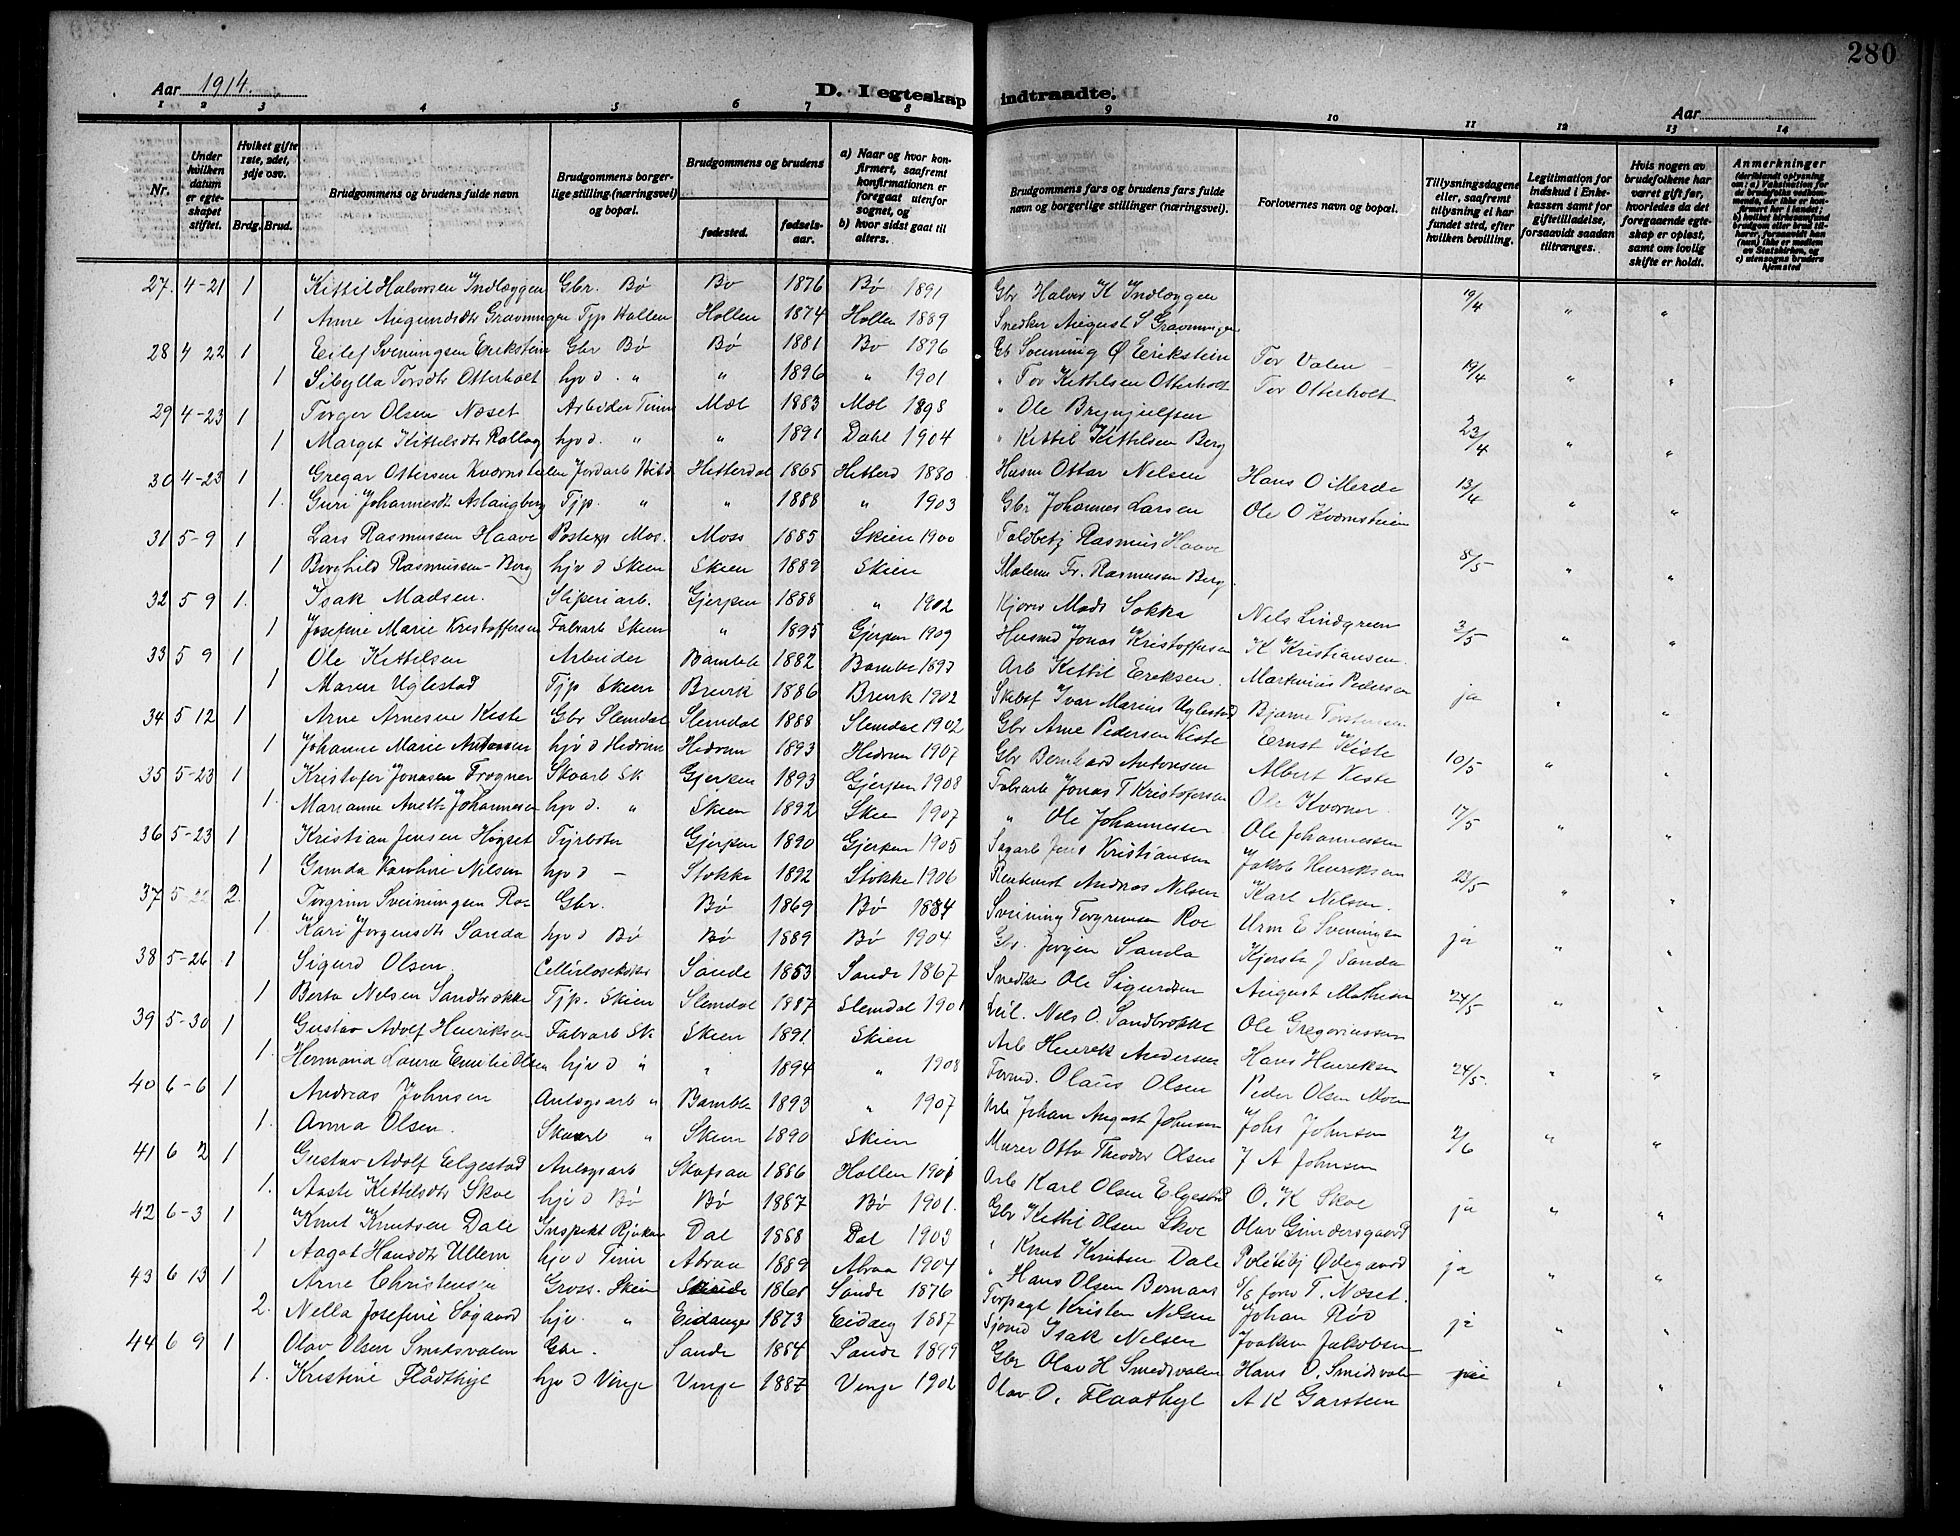 280
Aar 1914.
D. I egteskap indtraadte.
Aar
1 2 3 4 5 6 7 8 9 10 11 12 13 14
Nr.
Under hvilken datum er egteskapet stiftet.
Hvilket gifte 1ste, 2det, 3dje osv.
Brdg. Brud.
Brudgommens og brudens fulde navn
Brudgommens borgerlige stilling (næringsvei) og bopæl.
Brudgommens og brudens
fødested. fødselsaar.
a) Naar og hvor konfirmert, saafremt konfirmationen er foregaat utenfor sognet, og
b) hvor sidst gaat til alters.
Brudgommens fars og brudens fars fulde navn og borgerlige stillinger (næringsvei).
Forlovernes navn og bopæl.
Tillysningsdagene eller, saafremt tillysning ei har fundet sted, efter hvilken bevilling.
Legitimation for indskud i Enkekassen samt for giftetilladelse, forsaavidt saadan tiltrænges.
Hvis nogen av brudefolkene har været gift før, hvorledes da det foregaaende egteskap er opløst, samt om lovlig skifte er holdt.
Anmerkninger
27. 4-21 1 Kittil Halvorsen Indlæggen Gbr. Bø Bø 1876 Bø 1891 Gbr Halvor K Indlæggen 19/4
1 Anne Augundsdtr Gravningen Tjp Hollen Hollen 1874 Hollen 1889 Snedker August S Gravningen " "
28 4 22 1 Eilef Sveningsen Erikstein Gbr Bø Bø 1881 Bø 1896 Gb Svenning Ø Erikstein Tor Valen 19/4
1 Sibylla Torsdtr Otterholt hjv d. " " 1896 " 1901 " Tor Kittilsen Otterholt Tor Otterholt " "
29 4-23 1 Torger Olsen Næset Arbeider Tinn Mæl 1883 Mæl 1898 " Ole Brynjulfsen 23/4
1 Margit Kittelsdtr Rollag hjv d. " " 1891 Dahl 1904 " Kittil Kittilsen Berg " "
30 4-23 1 Gregar Ottersen Kvernstulen Jordarb Hitterdal 1865 Hitterd 1880 Husm Ottar Nelsen Hans O Merde 13/4
1. Guri Johannesdt Aslaugberg Tjp. " " 1888 " 1903 Gbr Johannes Larsen Ole O Kvernstuen " "
31 5-9 1 Lars Rasmussen Haave Postexp Mos. Moss 1885 Skien 1900 Toldbetj Rasmus Haave 8/5
1 Borghild Rasmussen-Berg hjv d Skien Skien 1889 Skien Malerm Fr. Rasmussen Berg. " "
32 5 9 1. Isak Madsen. Sliperiarb. Gjerpen 1888 " 1902 Mads Sokka Nils Lindgreen 3/5
1 Josefine Marie Kristoffersen Fabrarb Skien " 1895 Gjerpen 1909 Husmd Jonas Kristoffersen K Kristiansen. " "
33 5 9 1 Ole Kittilsen Arbeider Bamble 1882 Bamble 1897 Arb Kittil Eriksen. Markvius Pedersen ja
1 Maren Uglestad Tjp Skien Brevik 1886 Brevik 1902 Skibsf Ivar Marius Uglestad Bjarne Torstensen " "
34 5 12 1 Arne Arnesen Kiste Gbr Slemdal Slemdal 1888 Slemdal 1902 Gbr Arne Pedersen Kiste Ernst Kiste 10/5
1 Johanne Marie Antonsen hjv d Hedrum Hedrum 1893 Hedrum 1907 Gbr Bernhard Antonsen Albert Kiste " "
35 5-23 1 Kristofer Jonasen Frogner Skoarb Sk Gjerpen 1893 Gjerpen 1908 Fabrarb Jonas T Kristofersen Ole Kverner 17/5
1. Marianne Anette Johannesen hjv d. " Skien 1892 Skien 1907 " Ole Johannessen Ole Johannessen " "
36 5-23 1 Kristian Jensen Høgset Fyrbøter Gjerpen 1890 Gjerpen 1905 Sagarb Jens Kristiansen Jakob Henriksen 23/5
1 Gunda Karoline Nilsen hjv d - Stokke 1892 Stokke 1906 Rentenist Andreas Nilsen Karl Nilsen. " "
37 5-22 2. Torgrim Sveinungsen Roe Gbr. Bø 1869 Bø 1884 Sveinung Torgrimsen Roe Urm E Sveinungsen ja
1. Kari Jørgensdtr Sanda hjv d Bø Bø 1889 Bø 1904 Gbr. Jørgen Sanda Kjerste J Sanda " "
38 5-26 1 Sigurd Olsen. Sande 1853 Sande 1867 Snedker Ole Sigurdsen August Mathisen 24/5
1 Berta Nelsen Sandbrække Tjp. Skien Slemdal 1887 Slemdal 1901 Leil. Nels O. Sandbrekke Ole Gregoriussen " "
39 5-30 1 Gustav Adolf Henriksen Fabrarb Sk. Skien 1891. Skien Arb Henrik Andersen Hans Henriksen 24/5.
1. Hermana Laura Emilie Olsen hjv d " " 1894 " 1908 Formd. Olaus Olsen Peder Olsen Moen " "
40 6-6 1 Andreas Johnsen Anlegsarb " Bamble 1893 " 1907 Arb Johan August Johnsen Johs Johnsen 2/6
1. Anna Olsen. Skoarb " Skien 1890 Skien Murer Otto Theodor Olsen J A Johnsen " "
41 6 2 1 Gustav Adolf Elgestad Anlegsarb Skafsaa 1886 Hollen 1901 Arb Karl Olsen Elgestad O. K Skoe ja
1. Aaste Kittelsdtr Skoe hjv d Bø Bø 1887 Bø 1901. Gbr Kittil Olsen Skoe Olav Gundersgaard " "
42 6-3 1 Knut Knutsen Dale Inspekt Rjukan Dal 1888 Dal 1903 " Knut Knutsen Dale Politibtj Ødegaard ja
1 Aagot Hansdtr Ullern hjv d Tinn Atraa 1889 Atraa 1904 " Hans Olsen Bernaas T. Næset. " "
43 6 13 1 Arne Christensen Gross. Skien Sande 1861 Sande 1876 Torpagt Kristen Nilsen Johan Rød ja
2. Nella Josefine Høgaard hjv. " Eidanger 1873 Eidang 1887 Isak Nilsen Joakim Jakobsen " "
44 6 9 1 Olav Olsen Smedsvalen Gbr. Sande 1884 Sande 1899 Gbr Olav H Smedsvalen Hans O. Smedsvalen
1. Kristine Flådthyl hjv d Vinje Vinje 1887 Vinje 1902 Olav O. Flaathyl A K Garstein " "